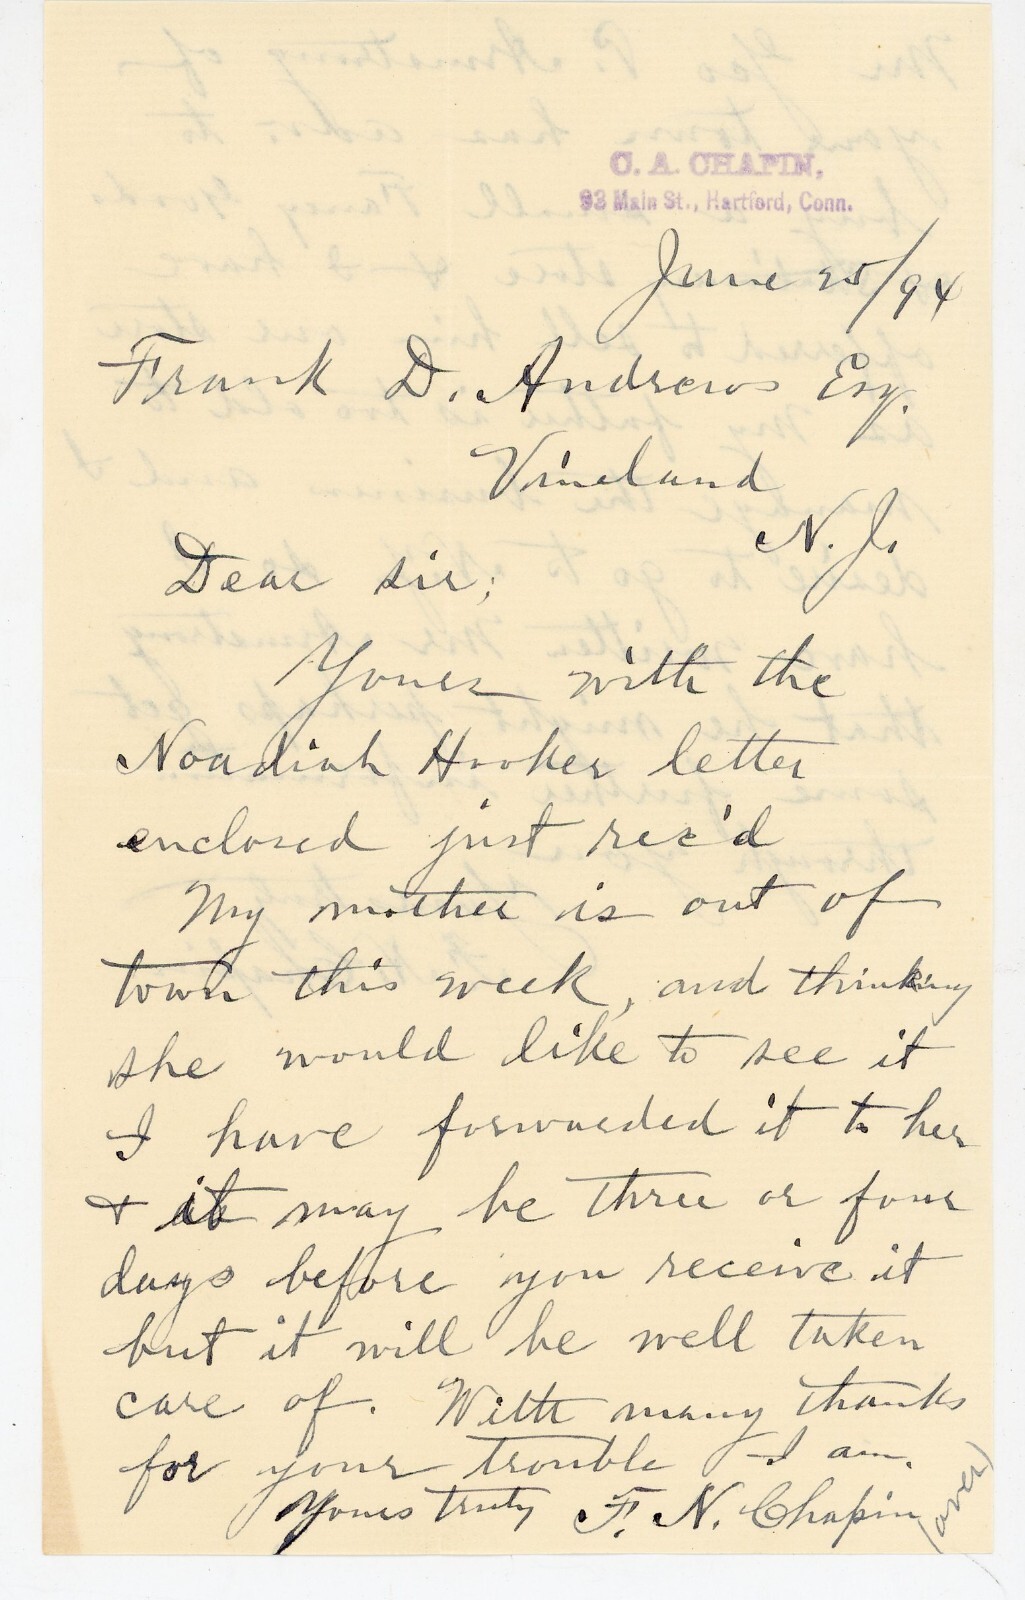 C. A. CHAPIN,
93 Main St., Hartford, Conn.
June 25/94
Frank D. Andrews Esq.
Vineland
N. J.
Dear sir;
Yours with the
Noadiah Hooker letter
enclosed just rec'd
My mother is out of
town this week, and thinking
she would like to see it
I have forwarded it to her
& it may be three or four
days before you receive it
but it will be well taken
care of. With many thanks
for your trouble I am.
Yours truly F. N. Chapin
(over)